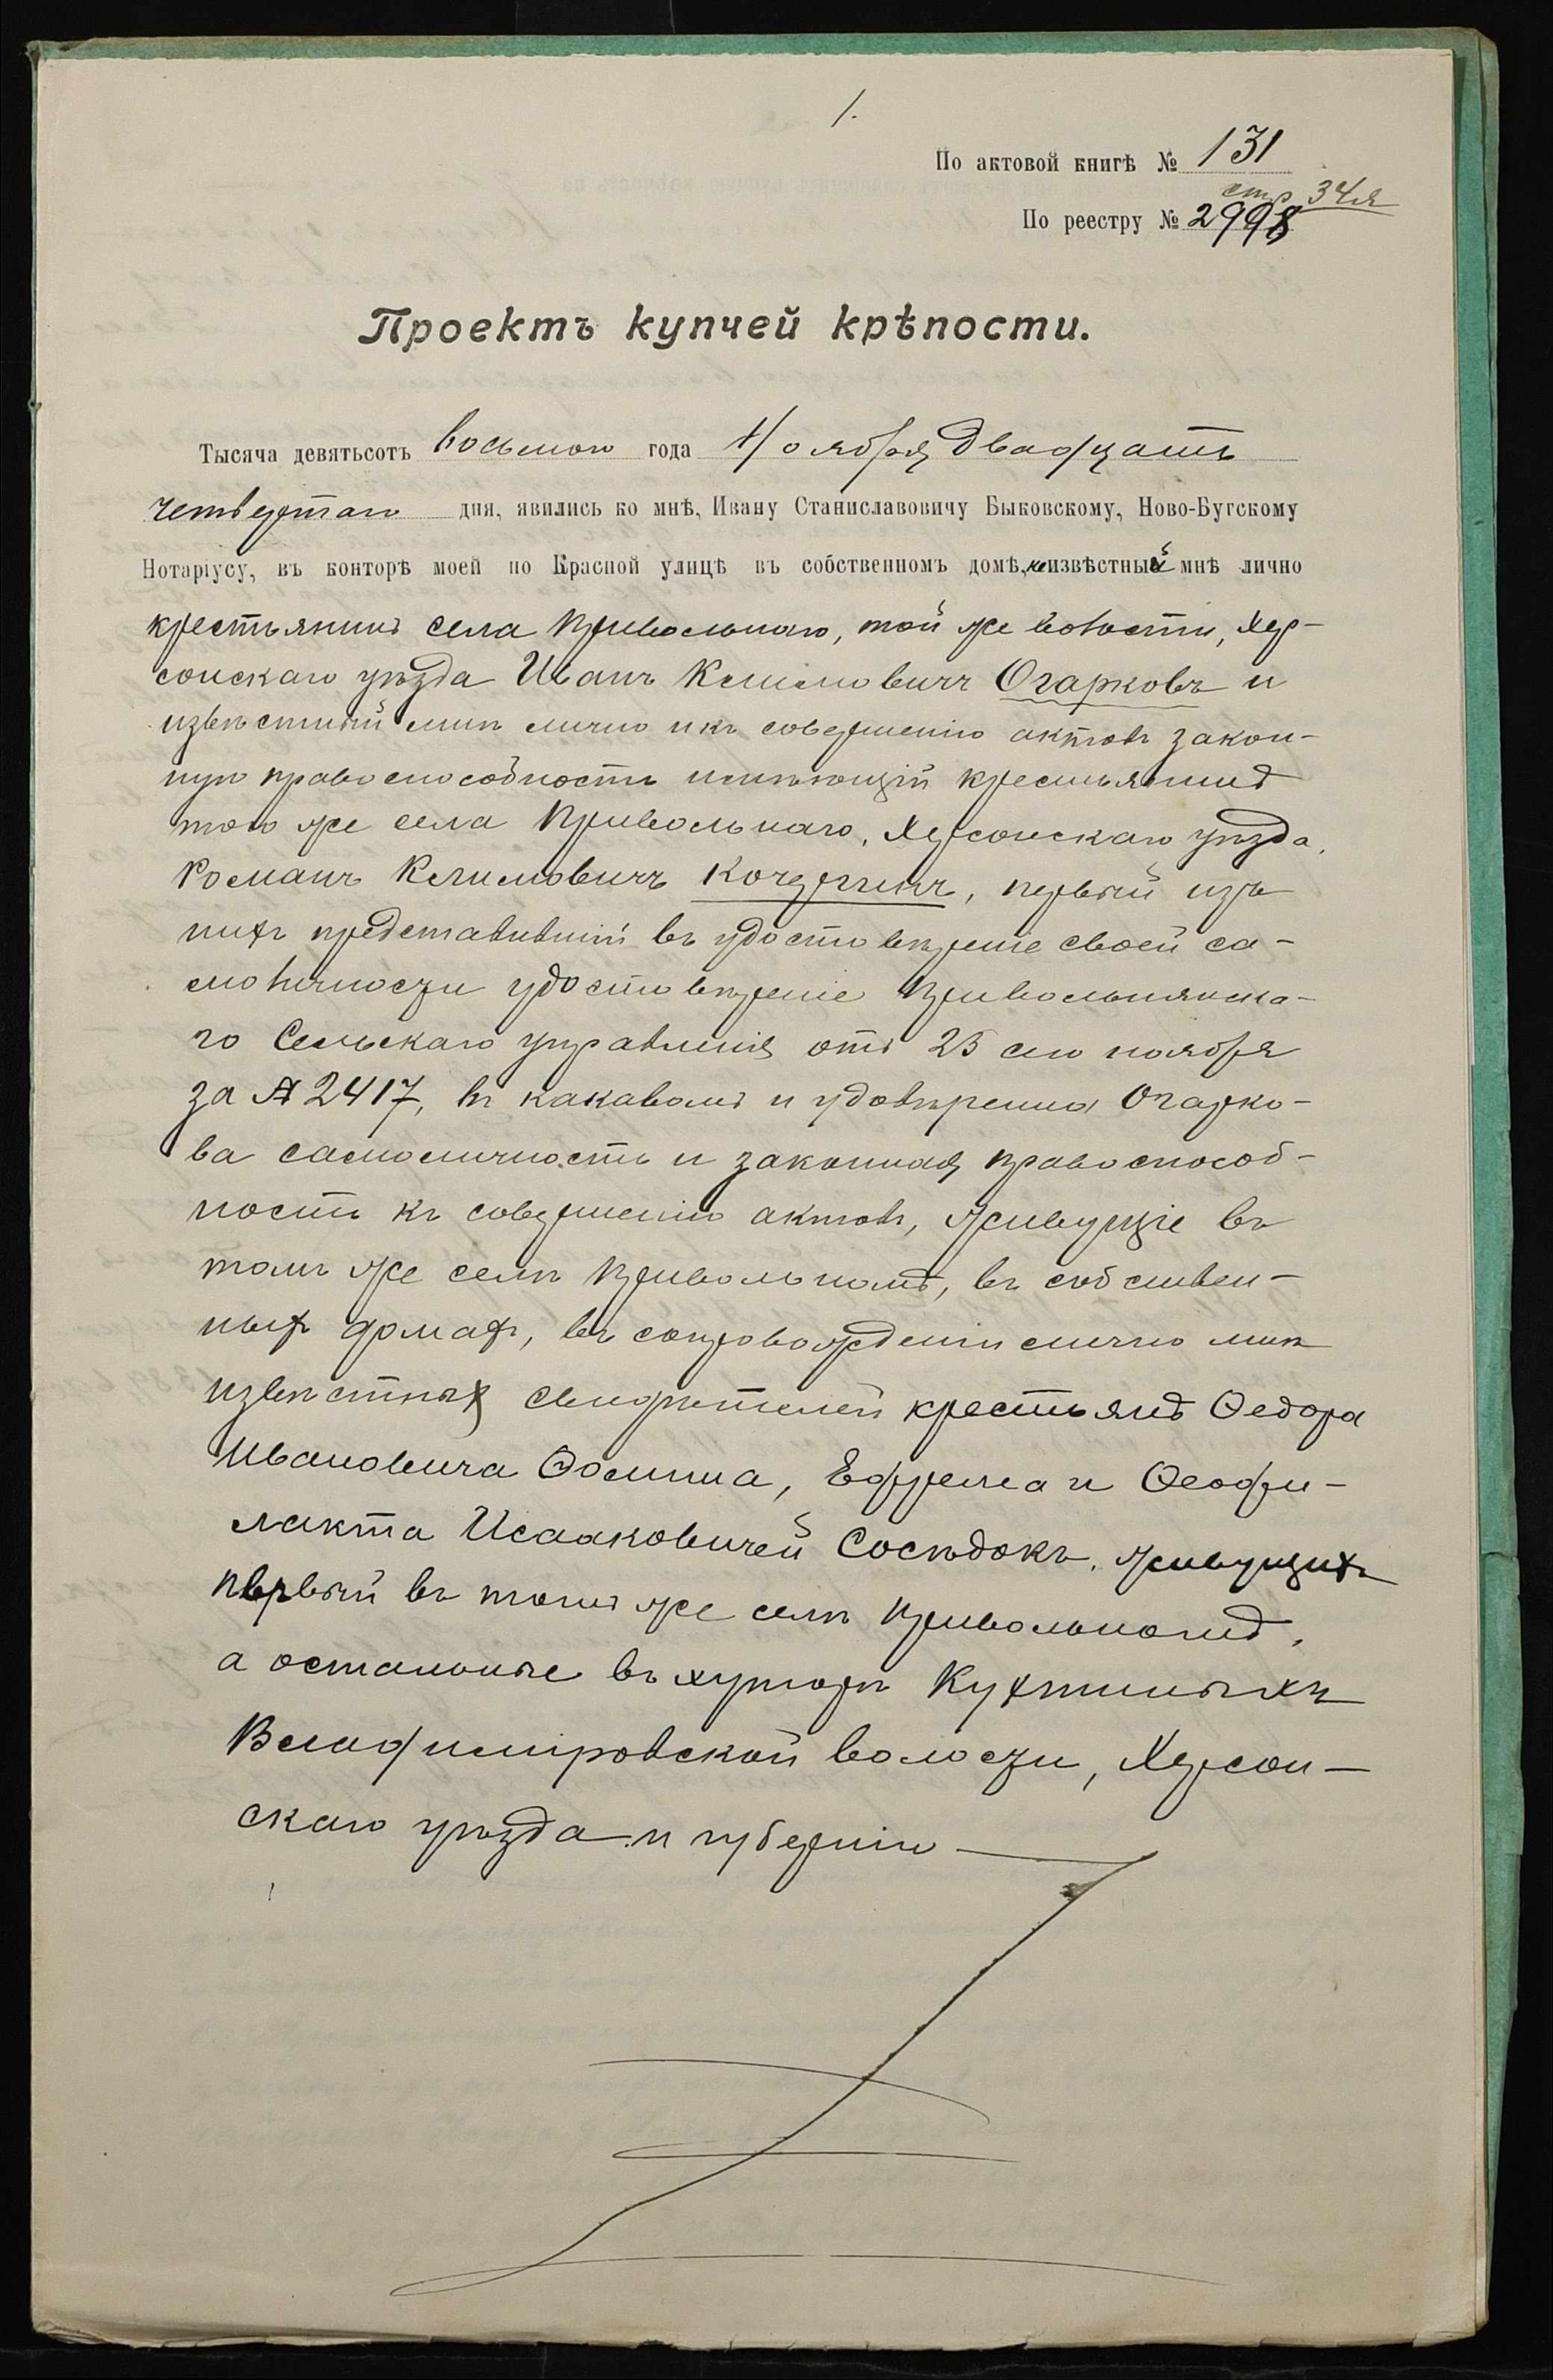 1.
По актовой книгѣ № 131
стр 34я
По реестру № 2998
Проектъ купчей крѣпости.
Тысяча девятьсотъ восьмого года Ноября двадцать
четвертаго дня, явились ко мнѣ, Ивану Станиславовичу Быковскому, Ново-Бугскому
Нотаріусу, въ конторѣ моей по Красной улицѣ въ собственномъ домѣ, неизвѣстный мнѣ лично
крестьянинъ села Привольнаго, той же волости, Хер-
сонскаго уѣзда Иванъ Климовичъ Огарковъ и
извѣстный мнѣ лично и къ совершенію актовъ закон-
ную правоспособность имѣющій крестьянинъ
того же села Привольнаго, Херсонскаго уѣзда,
Романъ Климовичъ Кочергинъ, первый изъ
нихъ представившій въ удостовѣреніе своей са-
моличности удостовѣреніе Привольнянска-
го Сельскаго управленія отъ 23 сего ноября
за № 2417, въ каковомъ и удовѣрена Огарко-
ва самоличность и законная правоспособ-
ность къ совершенію актовъ, живущіе въ
томъ же селѣ Привольномъ, въ собствен-
ныхъ домахъ, въ сопровожденіи лично мнѣ
извѣстныхъ свидѣтелей крестьянъ Ѳедора
Ивановича Ѳомина, Ефрема и Ѳеофи-
лакта Исааковичей Сосѣдокъ, живущихъ
первый въ томъ же селѣ Привольномъ,
а остальные въ хуторѣ
Владиміровской волости, Херсон-
скаго уѣзда и губерніи